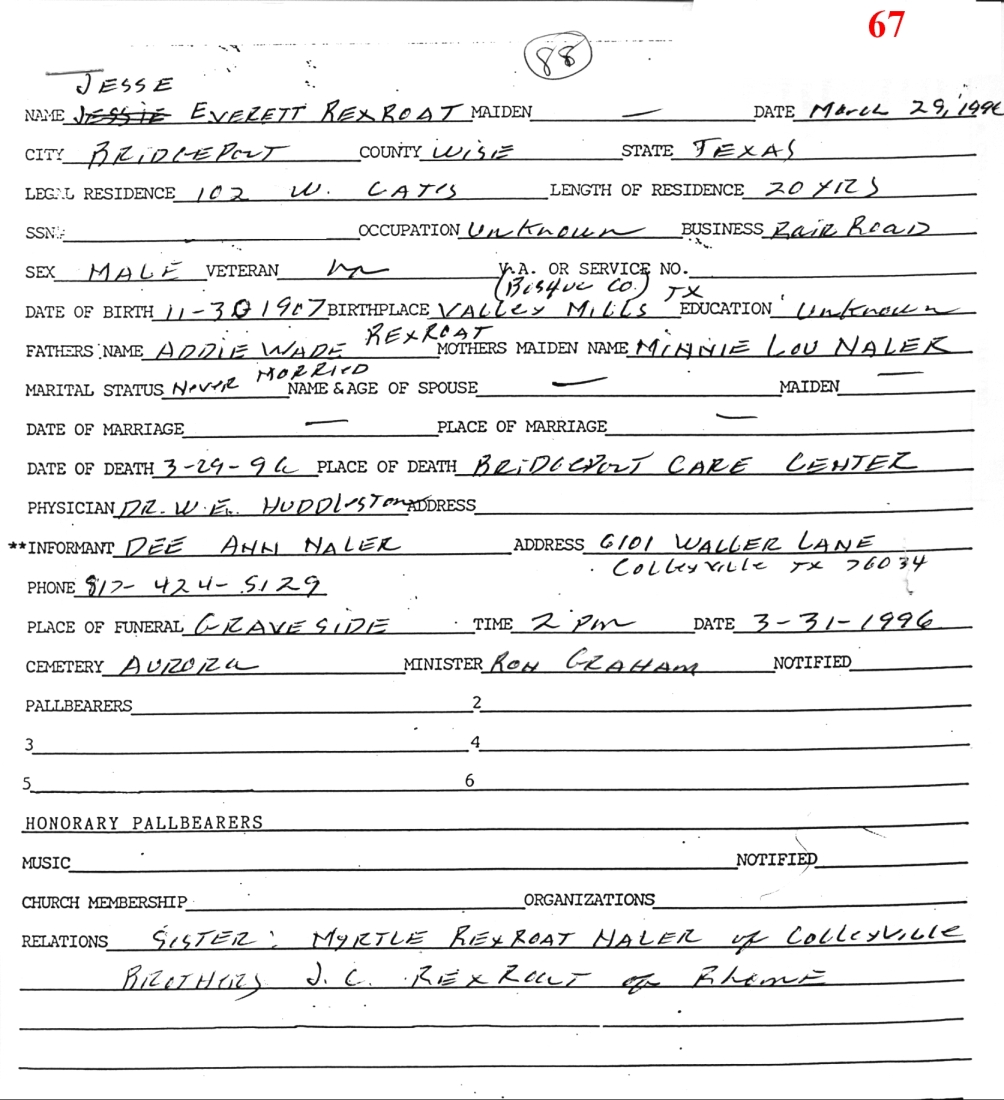 67
88
JESSE
NAME JESSIE EVERETT REXROAT MAIDEN — DATE March 29, 1996
CITY BRIDGEPORT COUNTY WISE STATE TEXAS
LEGAL RESIDENCE 102 W. CATES LENGTH OF RESIDENCE 20 YRS
SSN: OCCUPATION UnKnown BUSINESS RailRoad
SEX MALE VETERAN V.A. OR SERVICE NO.
(BOSQUE CO.) TX
DATE OF BIRTH 11-30 1907 BIRTHPLACE VALLEY MILLS EDUCATION UnKnown
REXROAT
FATHERS NAME ADDIE WADE MOTHERS MAIDEN NAME MINNIE LOU NALER
MARRIED
MARITAL STATUS NEVER NAME & AGE OF SPOUSE — MAIDEN —
DATE OF MARRIAGE — PLACE OF MARRIAGE —
DATE OF DEATH 3-29-96 PLACE OF DEATH BRIDGEPORT CARE CENTER
PHYSICIAN DR. W.E. HUDDLESTON ADDRESS
**INFORMANT DEE ANN NALER ADDRESS 6101 WALLER LANE
COLLEYVILLE TX 76034
PHONE 817-424-5129
PLACE OF FUNERAL GRAVESIDE TIME 2 PM DATE 3-31-1996
CEMETERY AURORA MINISTER RON GRAHAM NOTIFIED
PALLBEARERS 2
3 4
5 6
HONORARY PALLBEARERS
MUSIC NOTIFIED
CHURCH MEMBERSHIP ORGANIZATIONS
RELATIONS SISTER: MYRTLE REXROAT NALER of COLLEYVILLE
BROTHERS J.C. REXROAT of RHOME